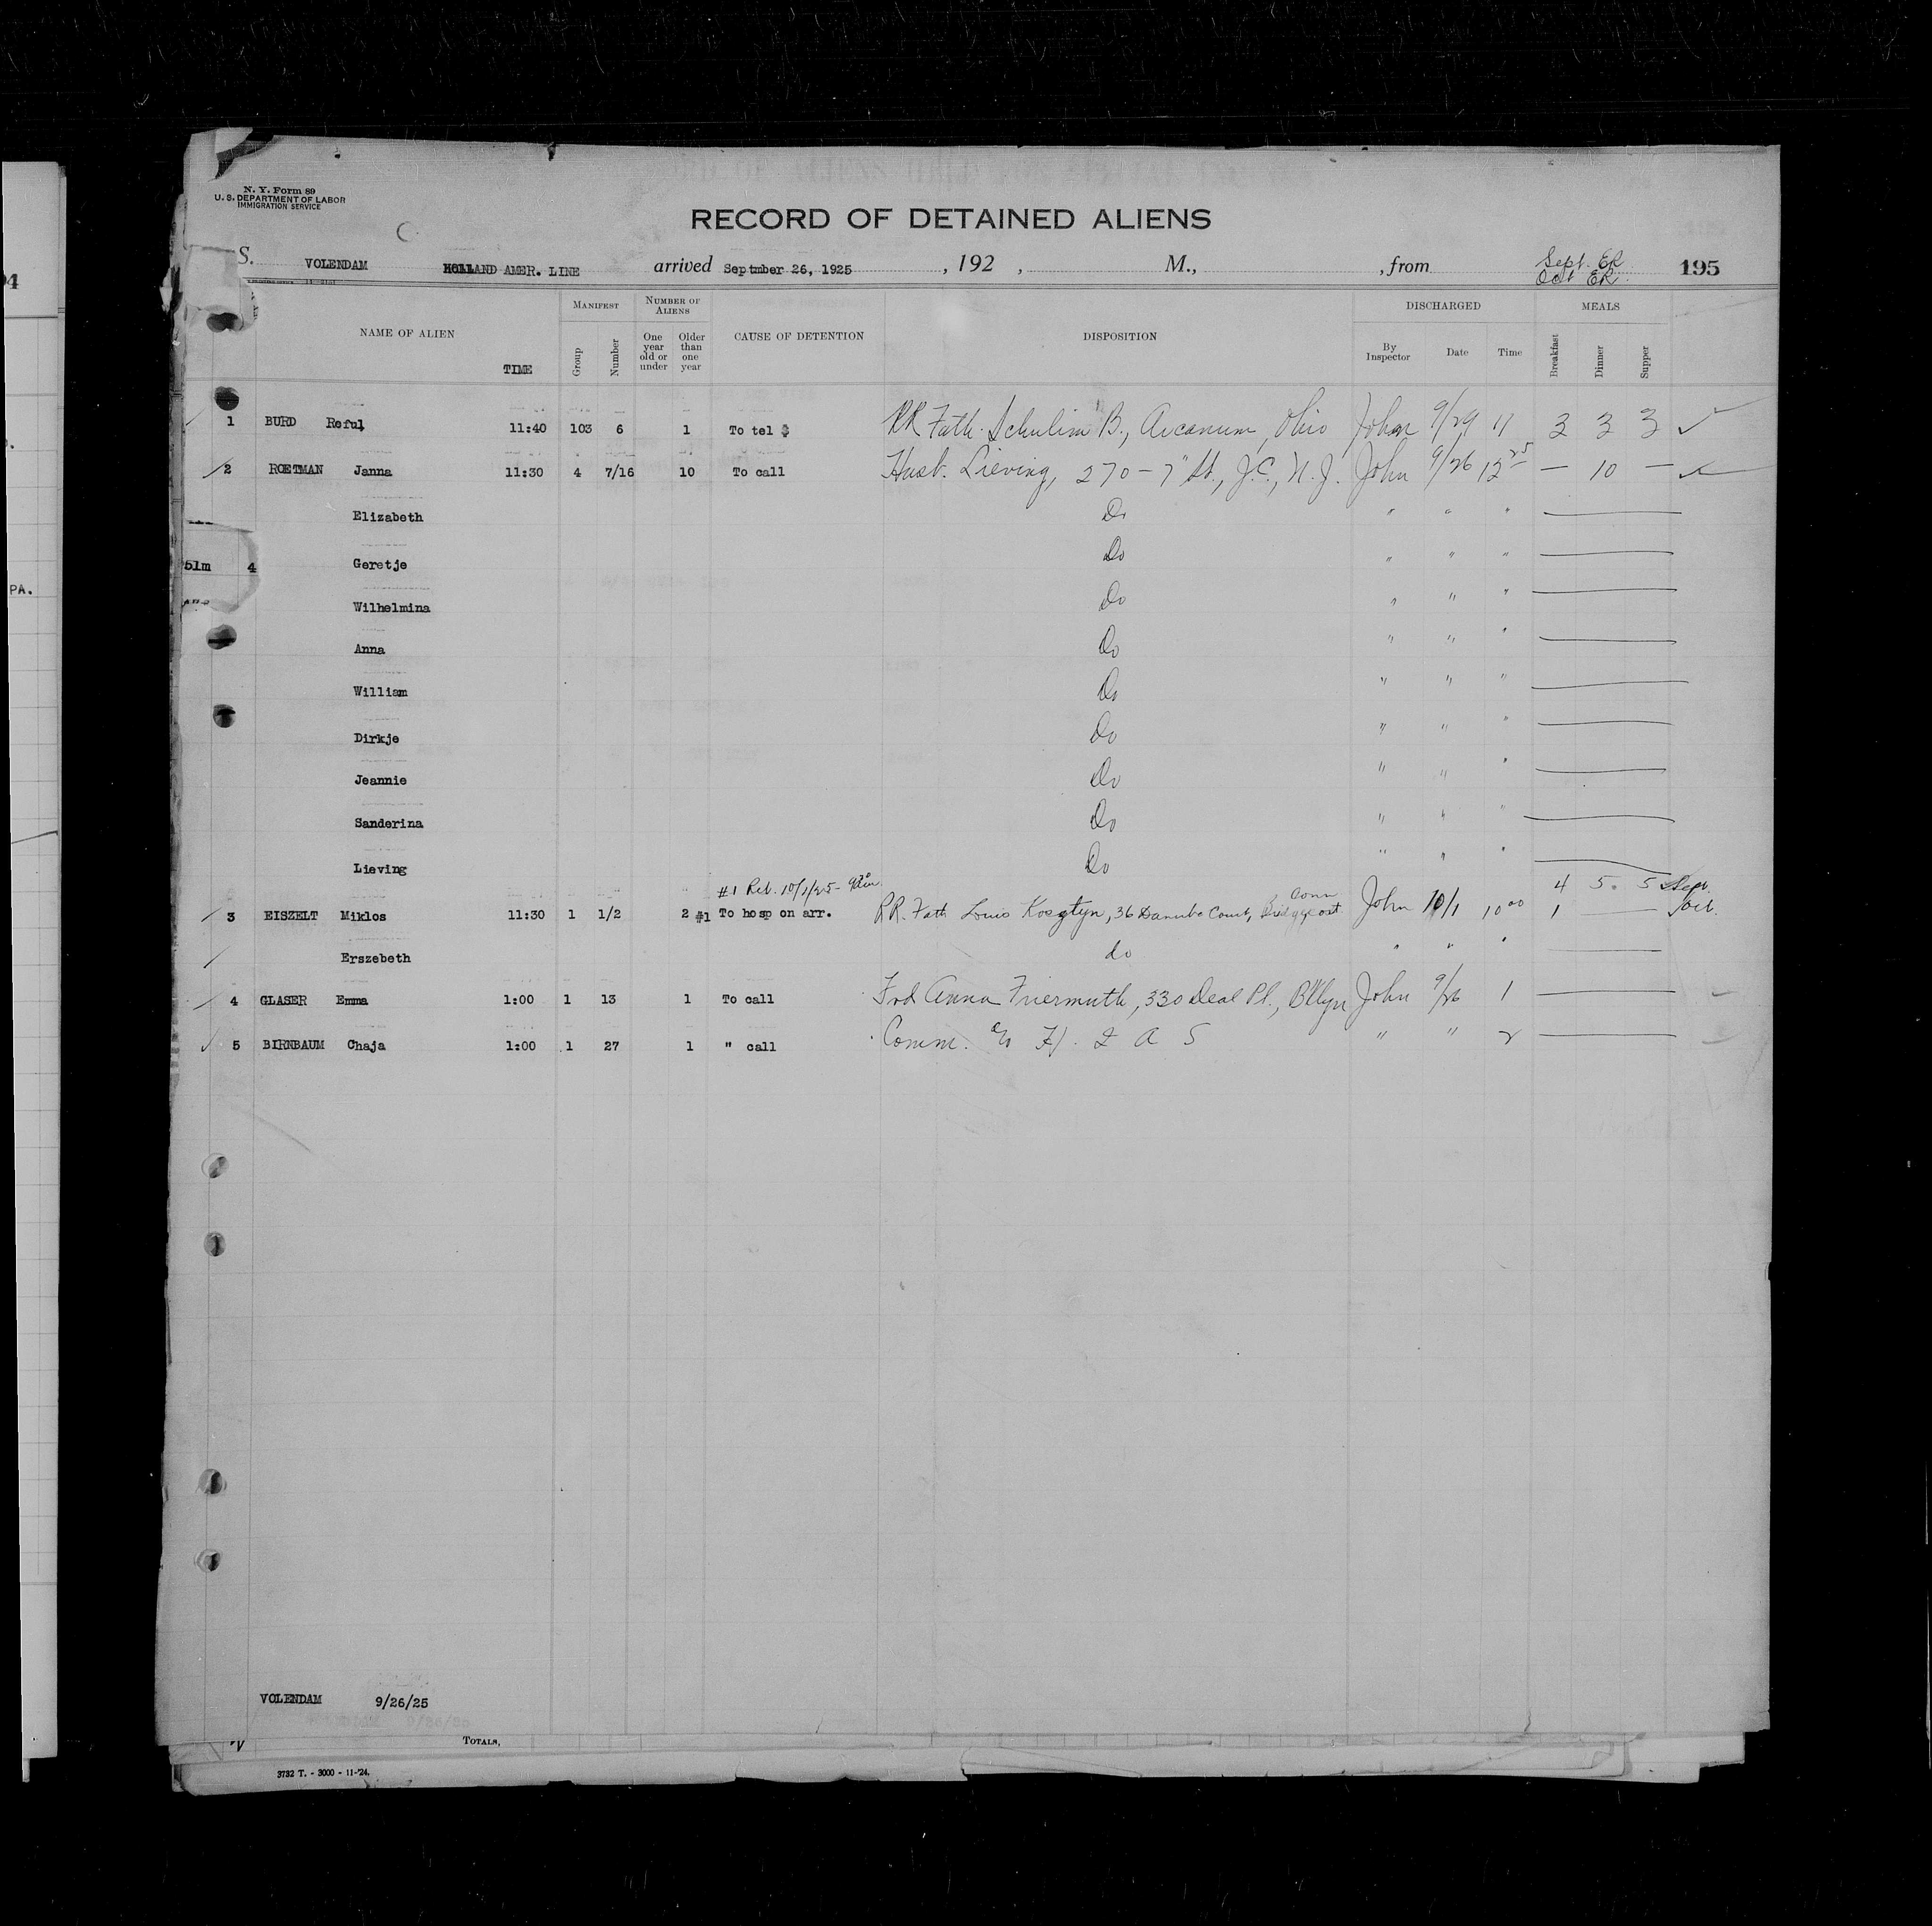 N. Y. Form 89
U. S. DEPARTMENT OF LABOR
IMMIGRATION SERVICE
RECORD OF DETAINED ALIENS
S. VOLENDAM HOLLAND AMER. LINE arrived Septmber 26, 1925 , 192 , M., , from Sept. ER 195
Oct ER.
NAME OF ALIEN TIME MANIFEST Group Number NUMBER OF ALIENS One year old or under Older than one year CAUSE OF DETENTION DISPOSITION DISCHARGED By Inspector Date Time MEALS Breakfast Dinner Supper
1 BURD Reful 11:40 103 6 1 To tel $ RR Fath. Schulim B., Arcanum, Ohio John 9/29 11 3 3 3
2 ROETMAN Janna 11:30 4 7/16 10 To call Husb. Lieving, 270 - 7" St., J.C., N.J. John 9/26 12 25 — 10 —
Elizabeth Do " " "
51m 4 Geretje Do " " "
Wilhelmina Do " " "
Anna Do " " "
William Do " " "
Dirkje Do " " "
Jeannie Do " " "
Sanderina Do " " "
Lieving Do " " "
#1 Rel. 10/1/25 - 4 5 5 Sept.
3 EISZELT Miklos 11:30 1 1/2 2 #1 To hosp on arr. RR. Fath Louis Kosztyn, 36 Danube Court, Bridgeport Conn John 10/1 10 00 1 Oct.
Erszebeth do " " "
4 GLASER Emma 1:00 1 13 1 To call Frd Anna Friermuth, 330 Deal Pl., Bklyn John 9/26 1
5 BIRNBAUM Chaja 1:00 1 27 1 " call Comm. c/o H. I A S " " 2
VOLENDAM 9/26/25
TOTALS,
3732 T. - 3000 - 11-'24.
94
PA.